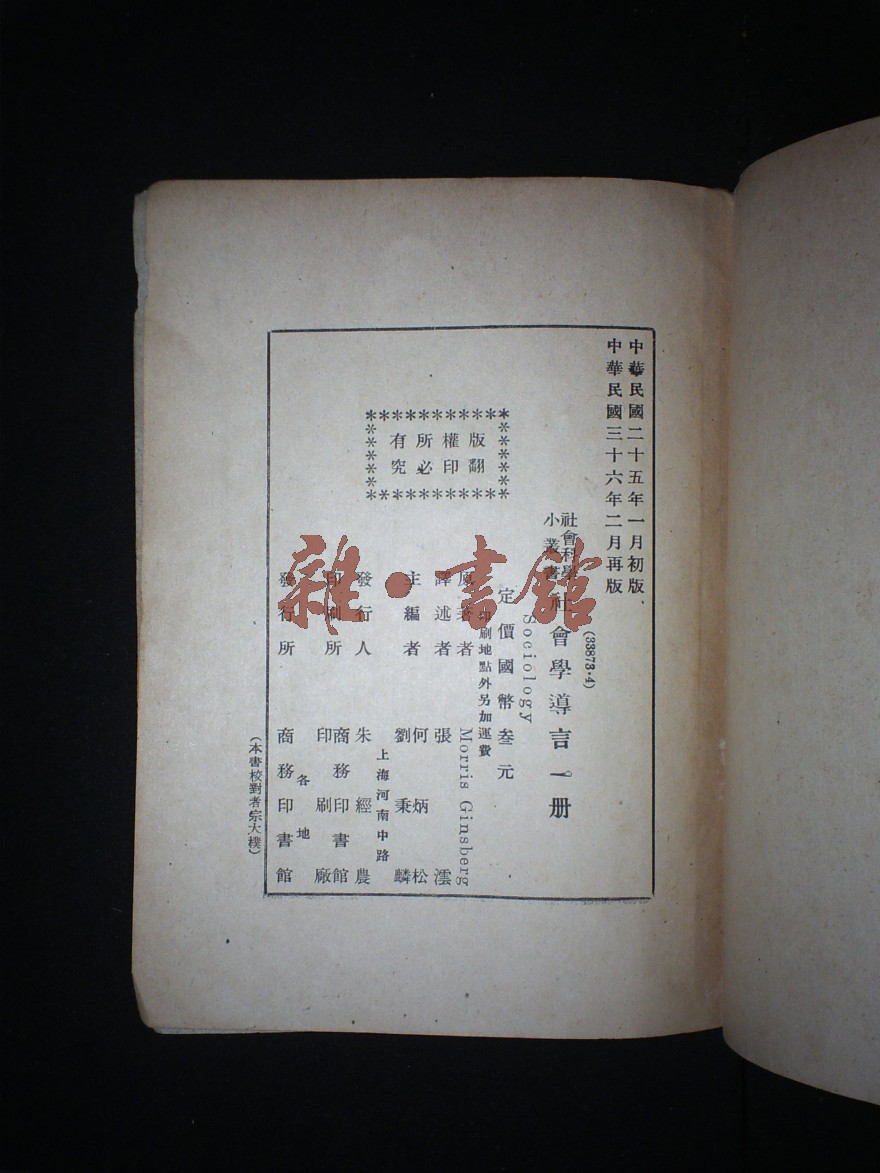 中華民國二十五年一月初版
中華民國三十六年二月再版
(33873·4)
社會科學小叢書 社會學導言一册
Sociology
定價國幣叁元
印刷地點外另加運費
版權所有
翻印必究
原著者 Morris Ginsberg
譯述者 張澐
主編者 何炳松 劉秉麟
發行人 朱經農
上海河南中路
印刷所 商務印書館印刷廠
發行所 各地商務印書館
(本書校對者宗大樸)
雜·書館